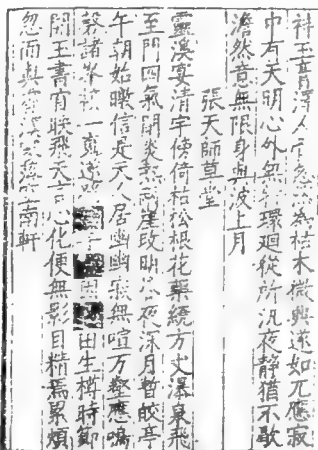 神玉膏澤人骨忽然為枯木微興遂如兀應寂
中有天明心外無物環迴從所汎夜静猶不歇
澹然意無限身與波上月
張天師草堂
靈溪宴清宇傍倚枯松根花藥繞方丈瀑泉飛
至門四氣閉炎熱兩崖改明昏夜深月暫皎亭
午朝始暾信是天人居幽幽寂無喧万壑應鳴
磬諸峯接一魂田生樽時節
開玉書有時飛天言心化便無影目精焉累煩
忽而與霄漢寥落空南軒